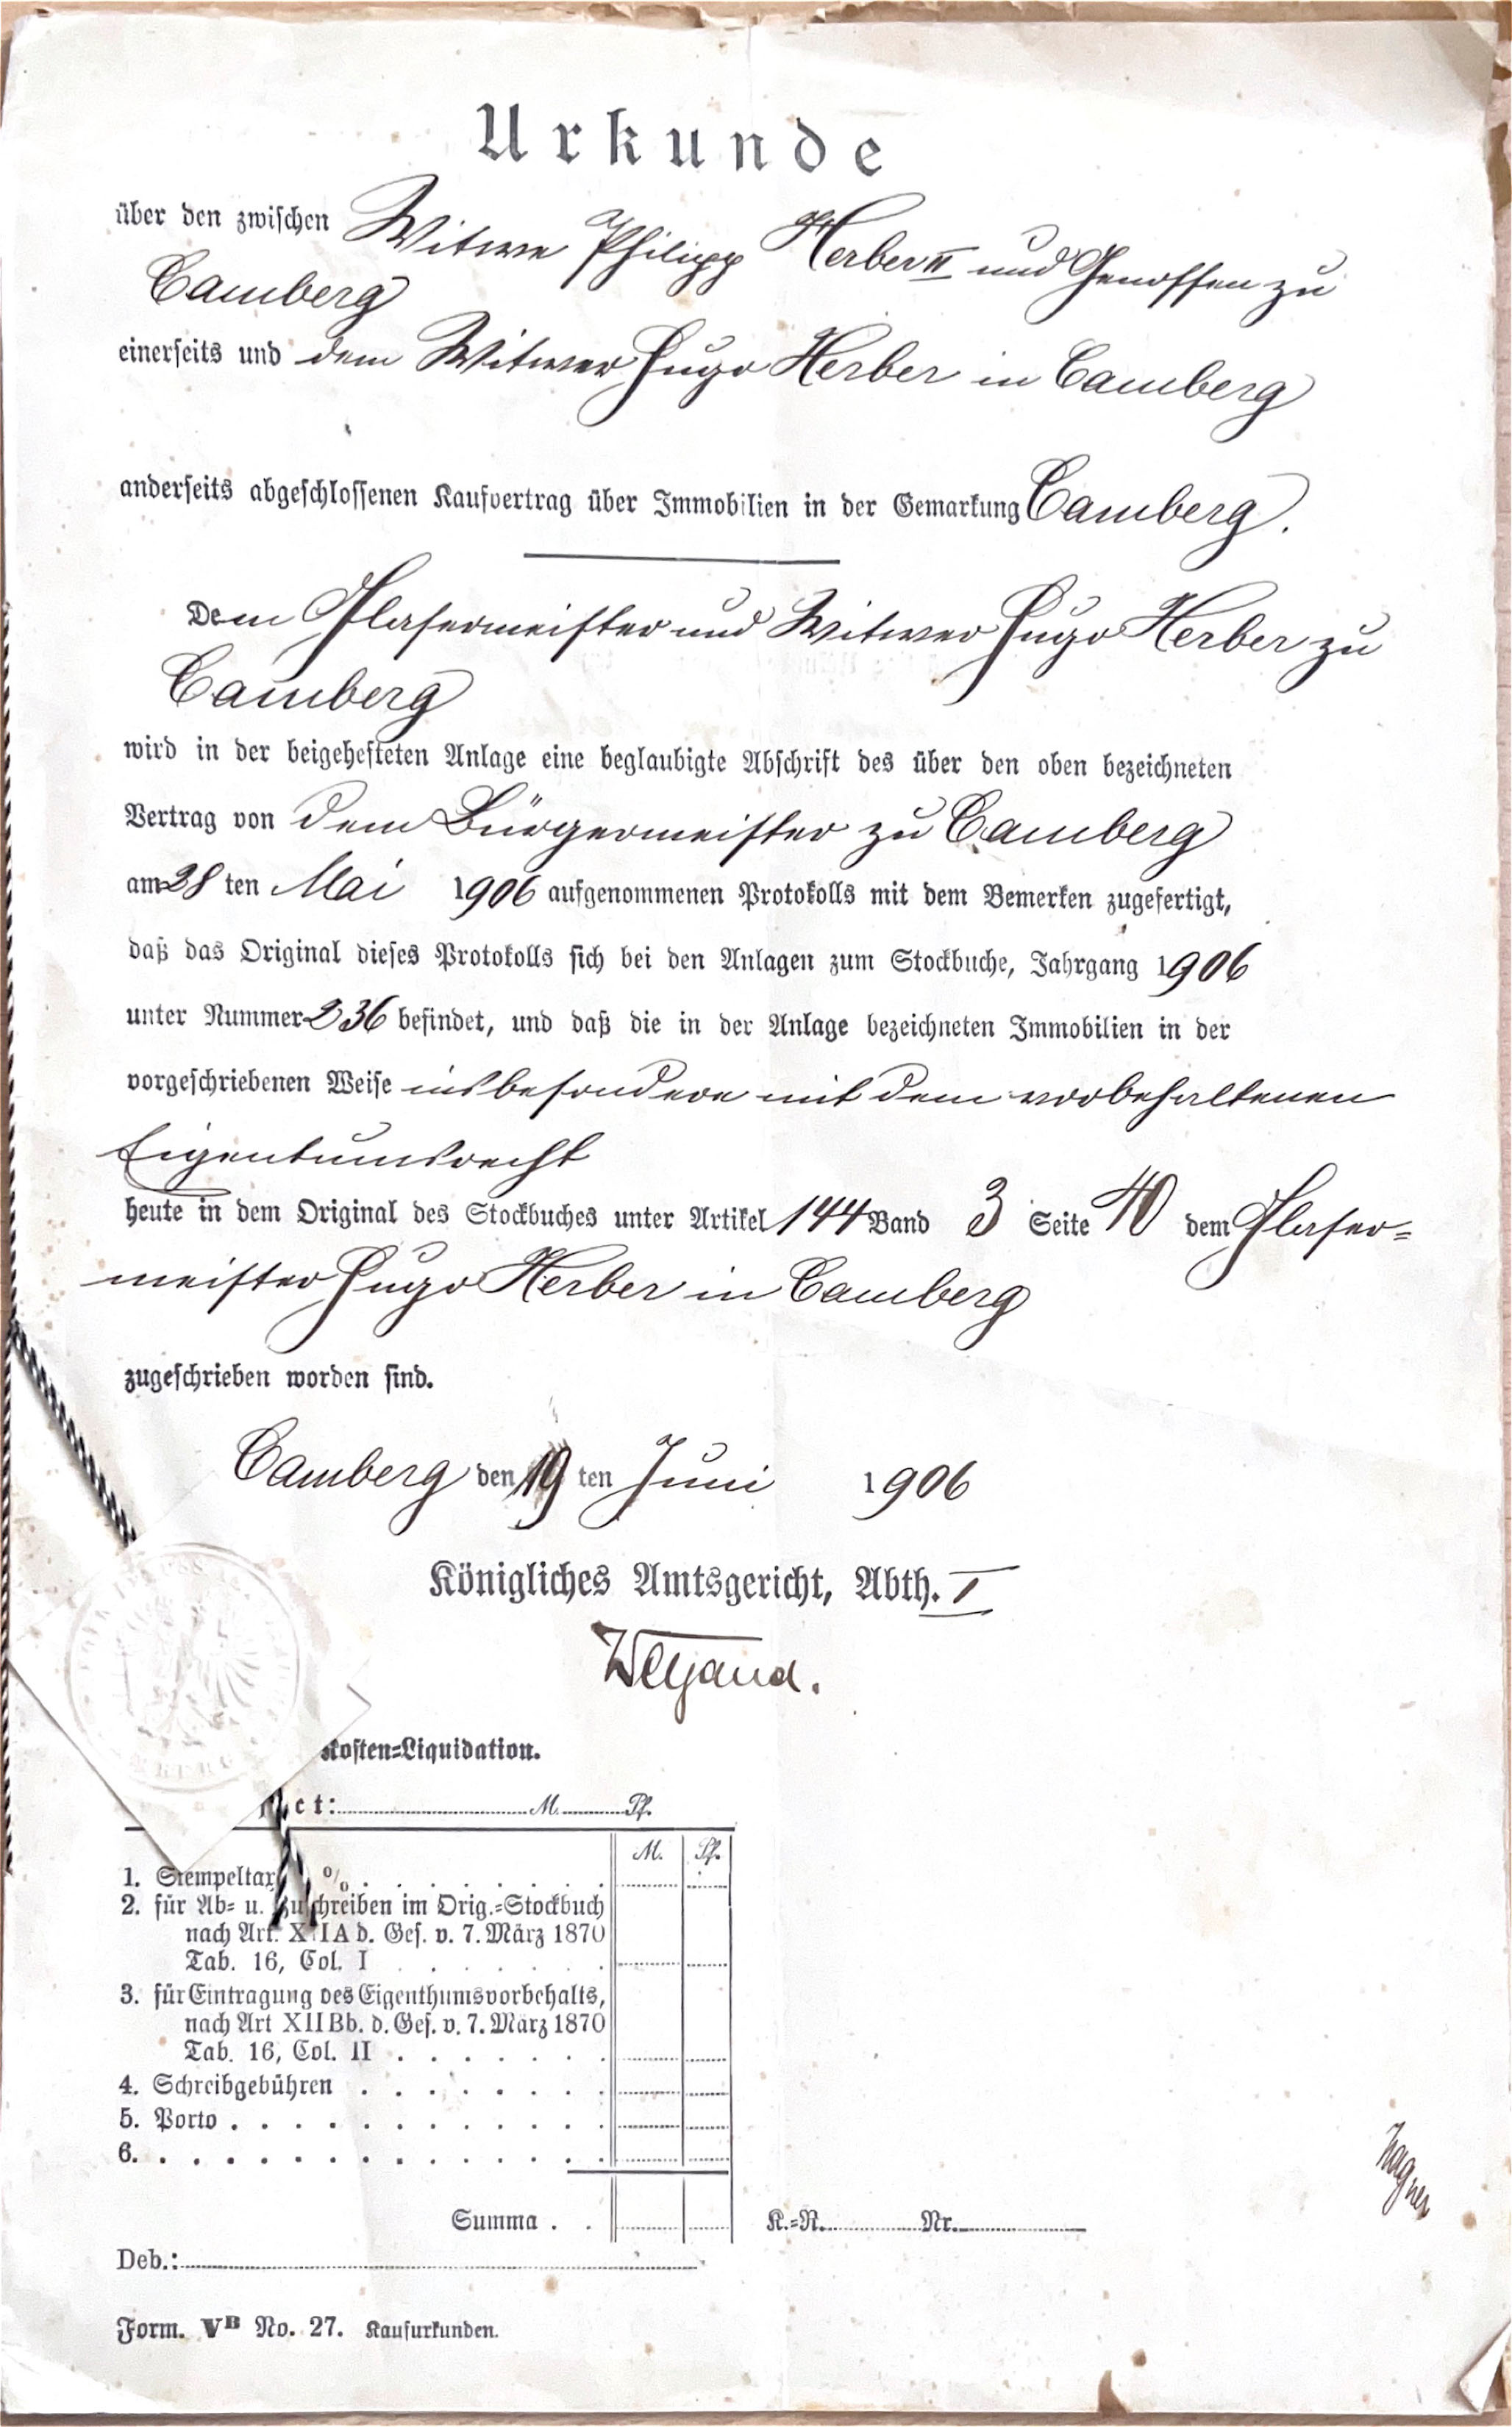 Urkunde
über den zwischen Witwe Philipp Herber II und Genossen zu
Camberg
einerseits und dem Witwer Hugo Herber in Camberg
anderseits abgeschlossenen Kaufvertrag über Immobilien in der Gemarkung Camberg.
Dem Glasermeister und Witwer Hugo Herber zu
Camberg
wird in der beigehefteten Anlage eine beglaubigte Abschrift des über den oben bezeichneten
Vertrag von dem Bürgermeister zu Camberg
am 28 ten Mai 1906 aufgenommenen Protokolls mit dem Bemerken zugefertigt,
daß das Original dieses Protokolls sich bei den Anlagen zum Stockbuche, Jahrgang 1906
unter Nummer 236 befindet, und daß die in der Anlage bezeichneten Immobilien in der
vorgeschriebenen Weise insbesondere mit dem vorbehaltenen
Eigentumsrecht
heute in dem Original des Stockbuches unter Artikel 144 Band 3 Seite 40 dem Glaser=
meister Hugo Herber in Camberg
zugeschrieben worden sind.
Camberg den 19 ten Juni 1906
Königliches Amtsgericht, Abth. I
Weyand.
Kosten=Liquidation.
ct: M. Pf.
M. Pf.
1. Stempeltax % . . . . . . .
2. für Ab= u. Zuschreiben im Orig.=Stockbuch
nach Art. XIIA d. Ges. v. 7. März 1870
Tab. 16, Col. I . . . . . .
3. für Eintragung des Eigenthumsvorbehalts,
nach Art XIIBb. d. Ges. v. 7. März 1870
Tab. 16, Col. II . . . . . . .
4. Schreibgebühren . . . . . . . .
5. Porto . . . . . . . . . . . .
6. . . . . . . . . . . . . . .
Summa . .
K.=R. Nr.
Deb.:
Form. VB No. 27. Kaufurkunden.